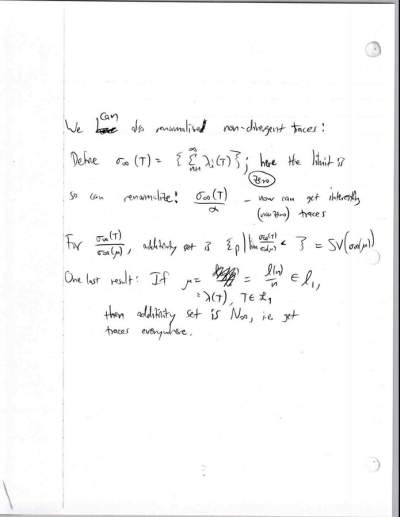 We can also renormalised non-divergent traces:
Define σ∞(T) = { Σ_{n+1}^∞ λᵢ(T) }; here the limit is zero
so can renormalize: σ∞(T)/α - now can get interesting (non zero) traces
For σ∞(T)/σ∞(μ), additivity set is {p | lim σ∞(T)/σ∞(μ) < } = SV(σ∞(μ))
One last result: If μ = = l(n)/n ∈ l₁,
= λ(T), T ∈ L₁
then additivity set is N∞, i.e. get
traces everywhere.